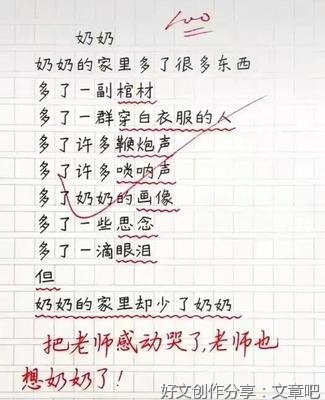 100
奶奶
奶奶的家里多了很多东西
多了一副棺材
多了一群穿白衣服的人
多了许多鞭炮声
多了许多唢呐声
多了奶奶的画像
多了一些思念
多了一滴眼泪
但
奶奶的家里却少了奶奶
把老师感动哭了,老师也
想奶奶了!
好文创作分享:文章吧